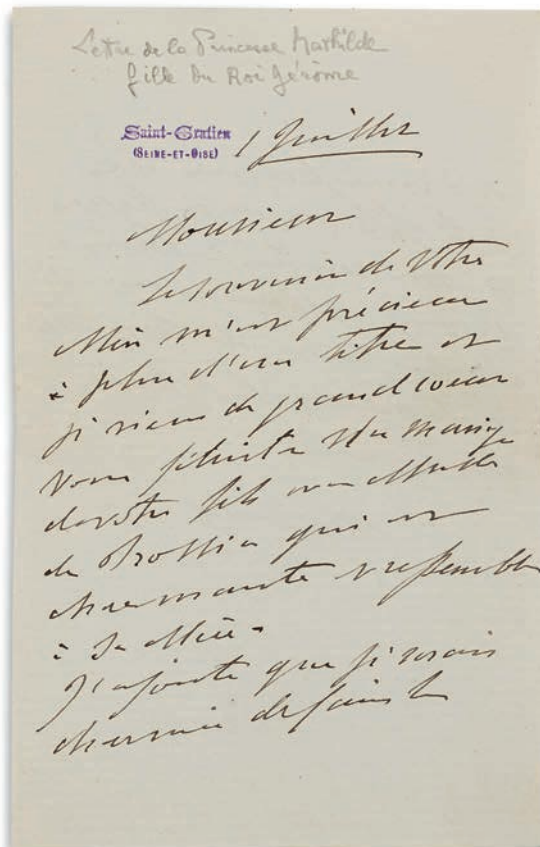 Lettre de la Princesse Mathilde
fille du Roi Jérôme
Saint-Gratien
(SEINE-ET-OISE)
1 Juillet
Monsieur
Le souvenir de votre
Mère m'est précieux
à plus d'un titre et
je viens de grand coeur
vous féliciter du mariage
de votre fils avec Melle
de qui est
charmante & ressemble
à sa Mère.
J'ajoute que je serais
charmée de faire la